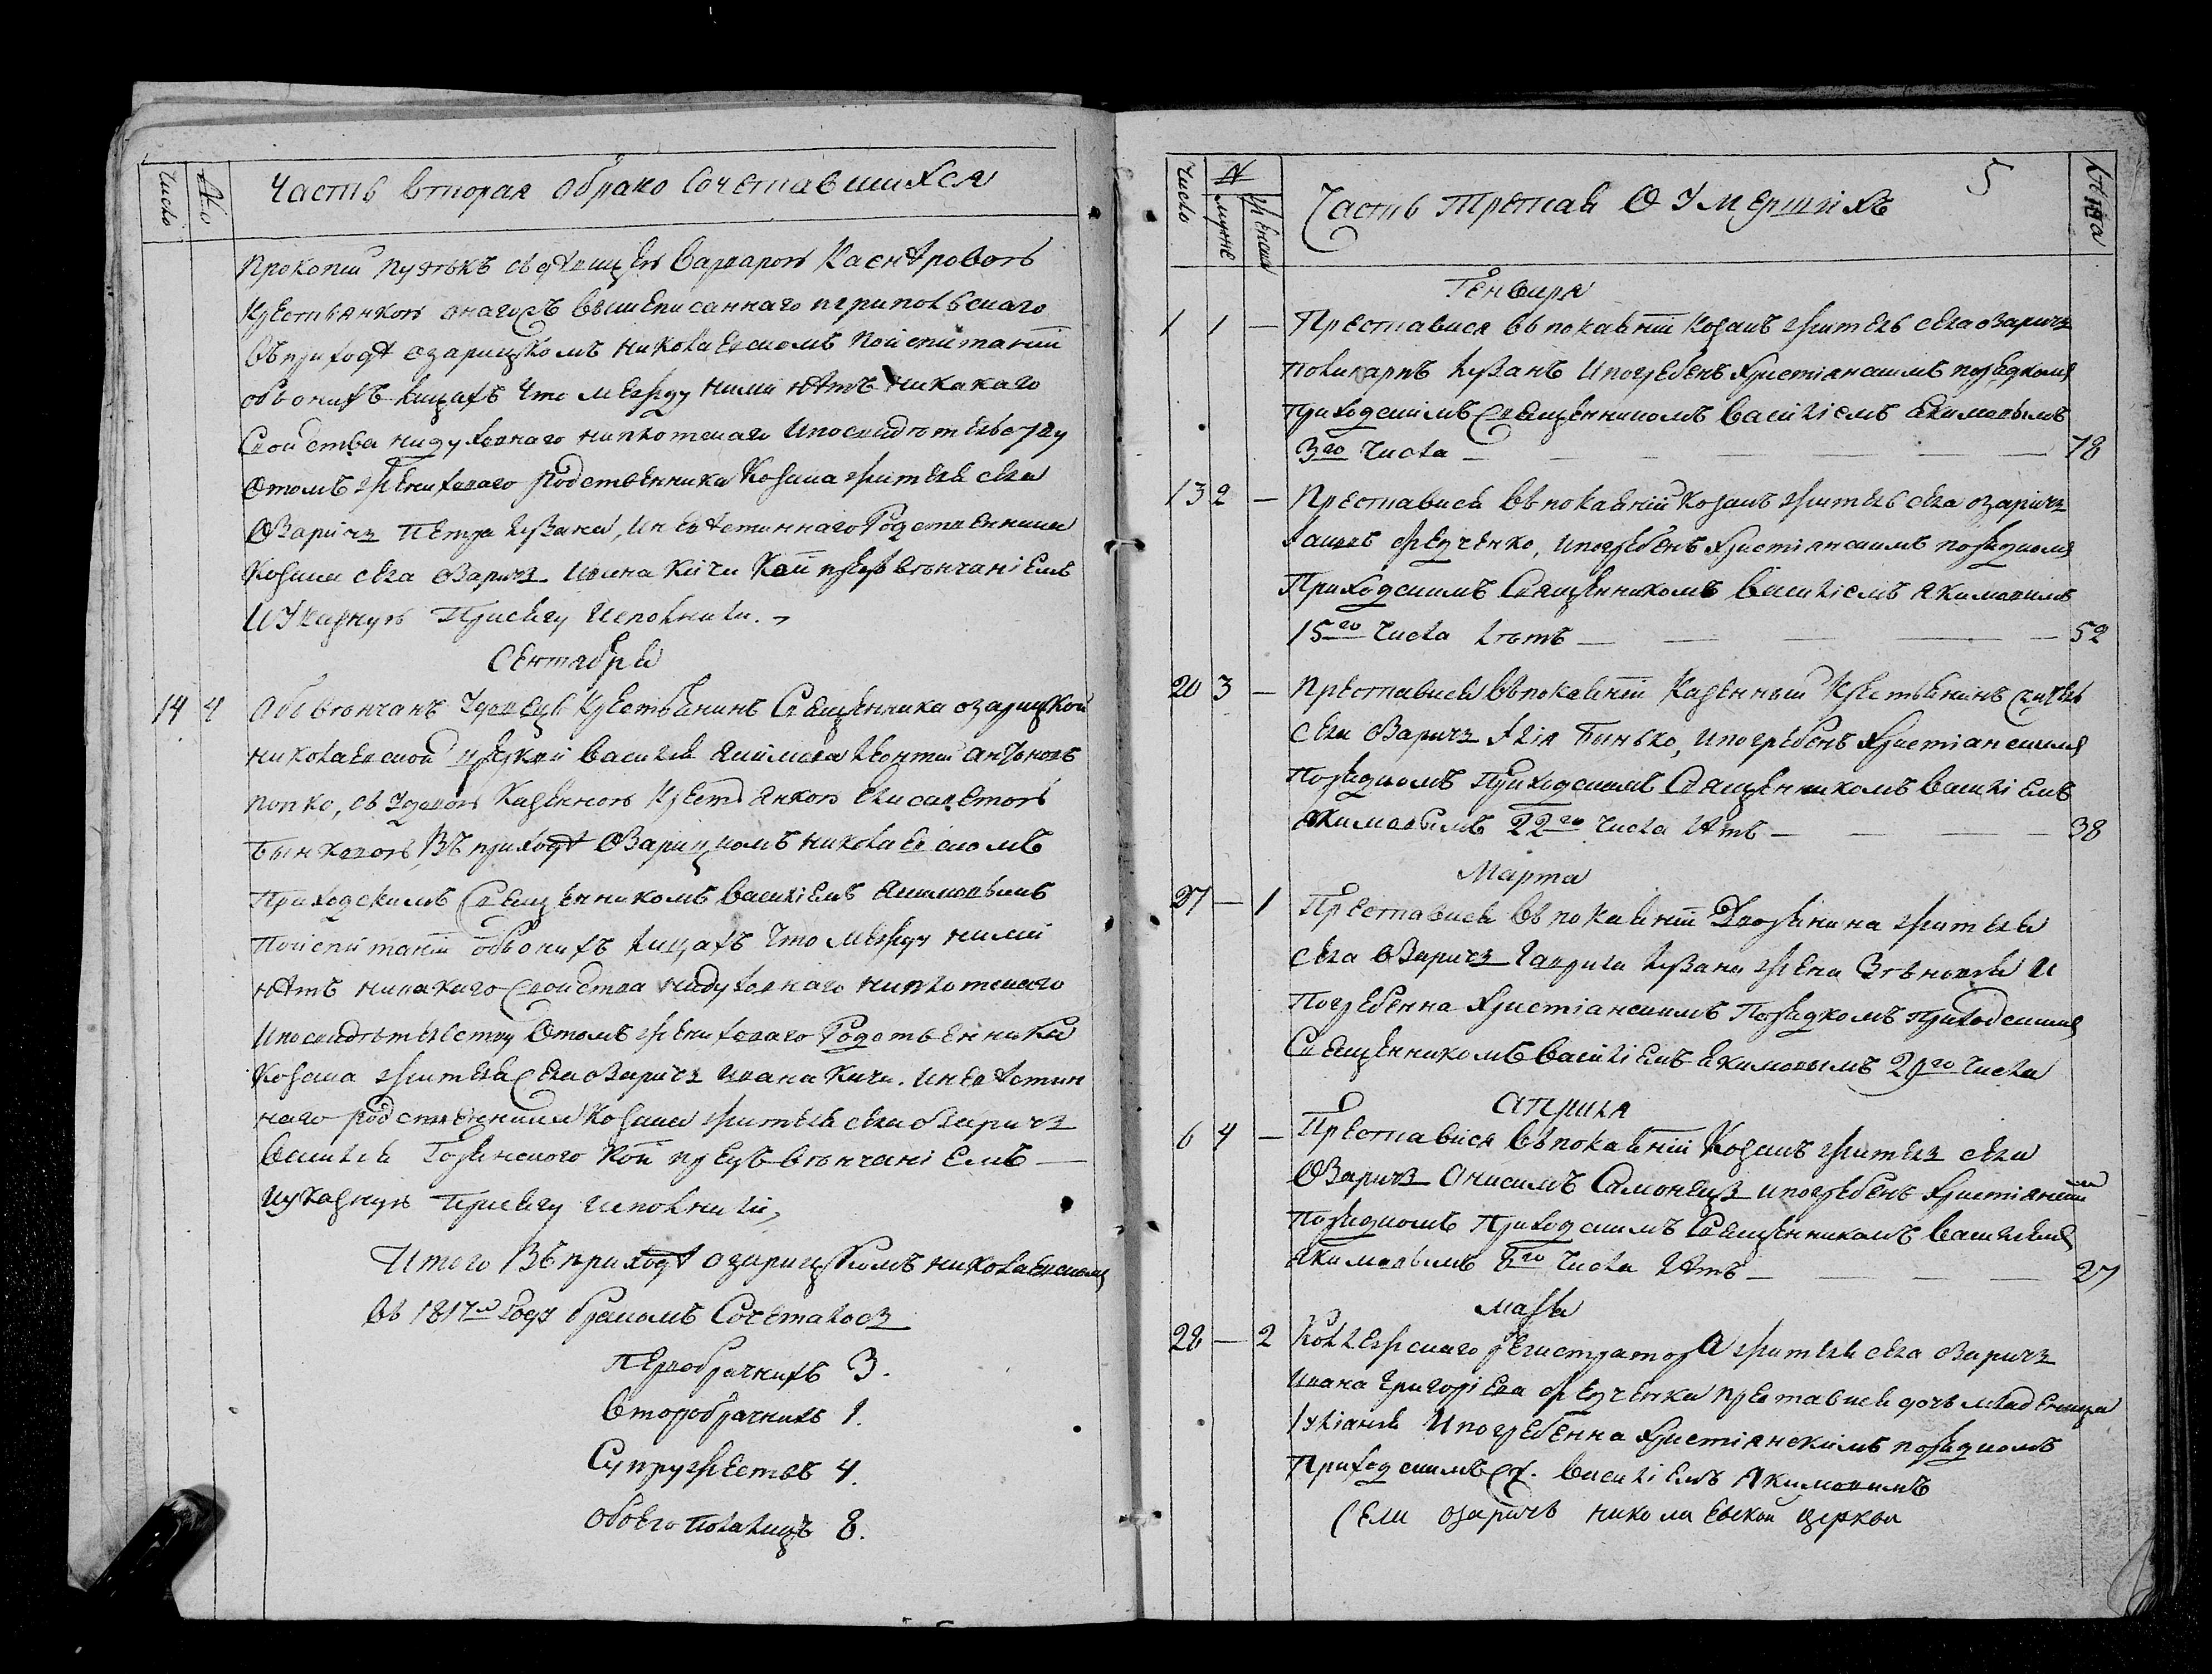 Число
№
Часть вторая о брако сочетавшихся
Прокопий съ девицею Варварою
Крестьянкою онагожъ вышеписаннаго
въ приходѣ озарицкомъ николаевскомъ по испитаніи
обѣ онихъ лицахъ что между ними нѣтъ никакаго
свойства ни духовнаго ни плотскаго и по свидѣтельству
о томъ женихового родственника козака жителя села
Озаричъ Петра Лузана, и невѣстиннаго родственника
козака села Озаричъ Ивана Кичи кои предъ вѣнчаніемъ
и указную присягу исполнили.
Сентября
14 4 Обвѣнчанъ удовецъ крестьянинъ священника озарицкой
николаевской церкви Василія Акимова Леонтий Антоновъ
попко, съ удовою казенною крестьянкою Елисаветою
Бынковою, въ приходѣ Озарицкомъ николаевскомъ
Приходскимъ Священникомъ Василіемъ Акимовымъ
По испитаніи обѣ онихъ лицахъ что между ними
нѣтъ никакаго свойства ни духовнаго ни плотскаго
и по свидѣтельству о томъ женихового родственника
козака жителя села Озаричъ Ивана Кичи. и невѣстин
наго родственника козака жителя села Озаричъ
Василія кои предъ вѣнчаніемъ
и указную присягу исполнили,
Итого въ приходѣ озарицкомъ николаевскомъ
въ 1817м году бракомъ сочеталось
первобрачнихъ 3.
второбрачнихъ 1.
Супружествъ 4.
обоего пола лицъ 8.
Число
№
мужск
женск
Часть третая о умершихъ
5
лѣта
Генваря
1 1 — Преставися въ покаяніи козакъ житель села озаричъ
поликарпъ Лузанъ и погребенъ христіанскимъ порядкомъ
приходскимъ священникомъ Василіемъ Акимовымъ
3го числа — 78
13 2 — Преставися въ покаяніи козакъ житель села озаричъ
и погребенъ христіанскимъ порядкомъ
Приходскимъ священникомъ Василіемъ Акимовимъ
15го числа лѣтъ — 52
20 3 — Преставися въ покаяніи казенный крестьянинъ житель
села Озаричъ Илія Бинько, и погребенъ христіанскимъ
порядкомъ приходскимъ священникомъ Василіемъ
Акимовымъ 22го числа лѣтъ — 38
Марта
27 — 1 Преставися въ покаяніи дворянина жителя
села Озаричъ Гаврила Лузана жена и
погребенна христіанскимъ порядкомъ приходскимъ
священникомъ Василіемъ Акимовымъ 29го числа
Априля
6 4 — Преставися въ покаяніи козакъ житель села
Озаричъ Онисимъ и погребенъ христіанским
порядкомъ приходскимъ священникомъ Василіемъ
Акимовымъ числа лѣтъ — 27
Маія
28 — 2 Коллежскаго регистратора жителя села Озаричъ
Ивана Григоріева преставися дочь младеница
Іуліанія и погребенна христіанскимъ порядкомъ
Приходскимъ св. Василіемъ Акимовимъ
Села озаричъ николаевской церкви